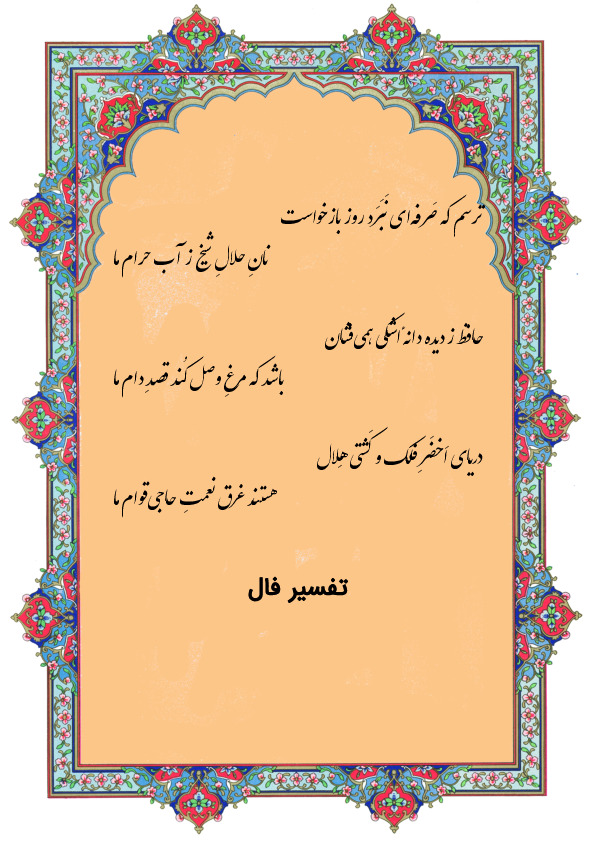 ترسم که صَرفه‌ای نَبَرَد روز بازخواست
نانِ حلالِ شیخ ز آب حرام ما
حافظ ز دیده دانهٔ اشکی همی‌فشان
باشد که مرغِ وصل کُند قصدِ دام ما
دریای اَخضَرِ فلک و کَشتی هِلال
هستند غرق نعمتِ حاجی قوام ما
تفسیر فال